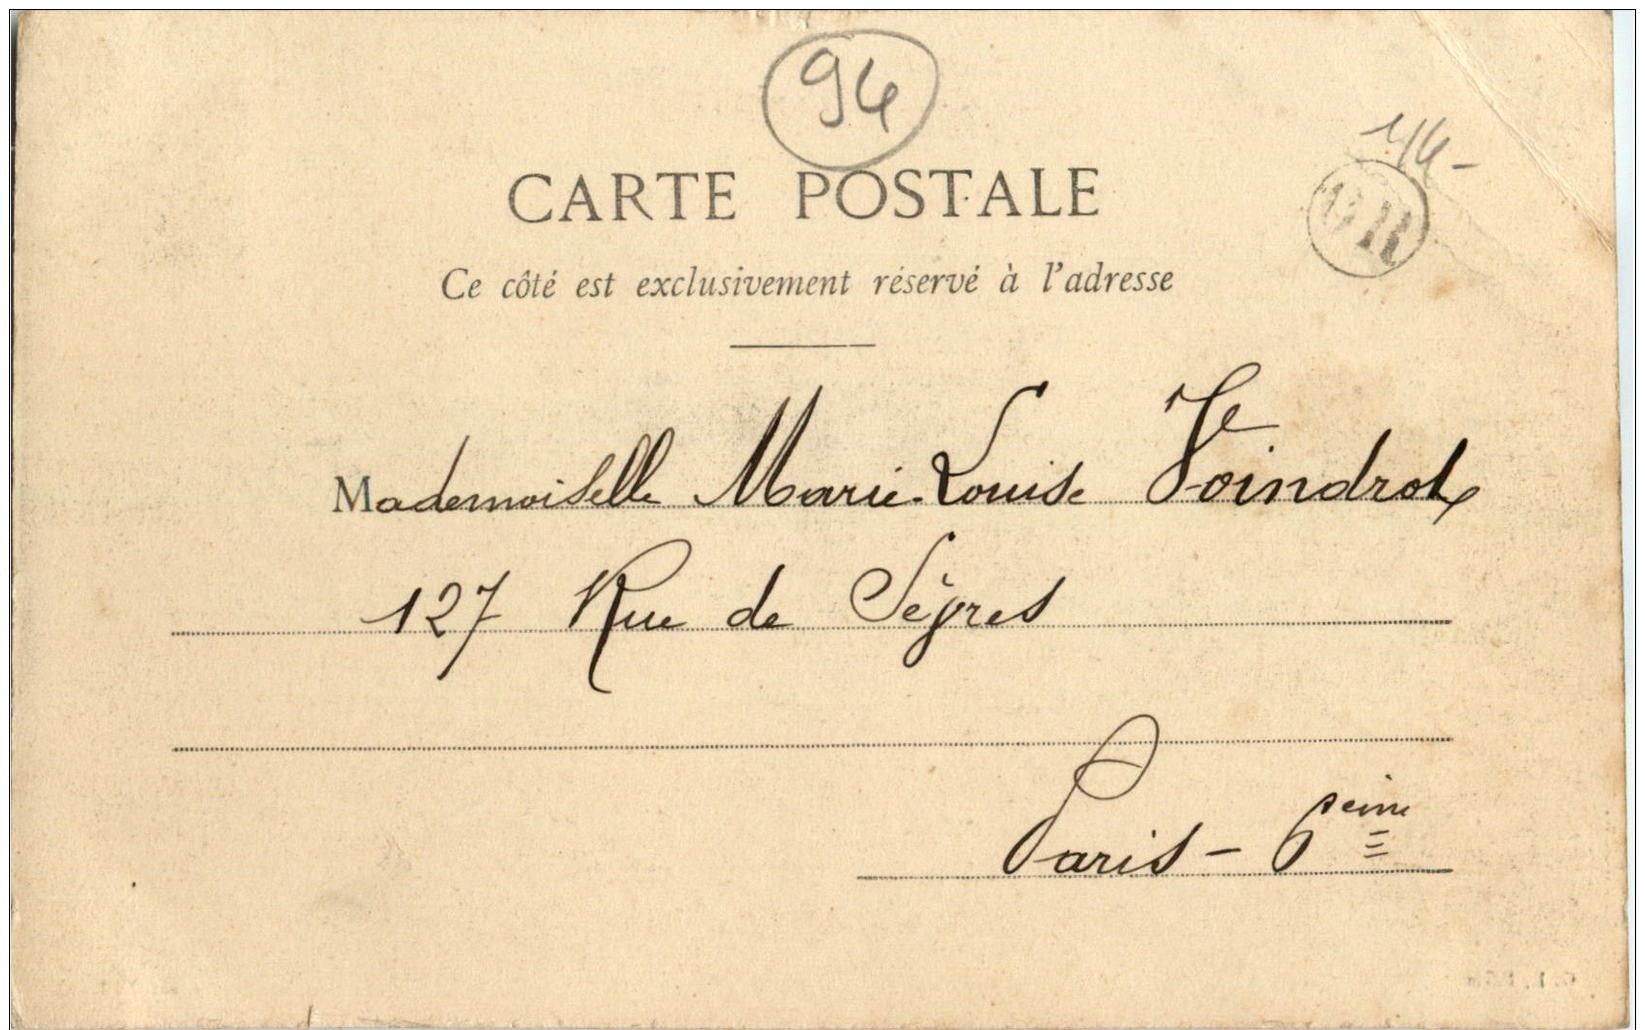 94
CARTE POSTALE
1/4-
Ce côté est exclusivement réservé à l'adresse
Mademoiselle Marie-Louise
127 Rue de Sèvres
Paris - 6eme